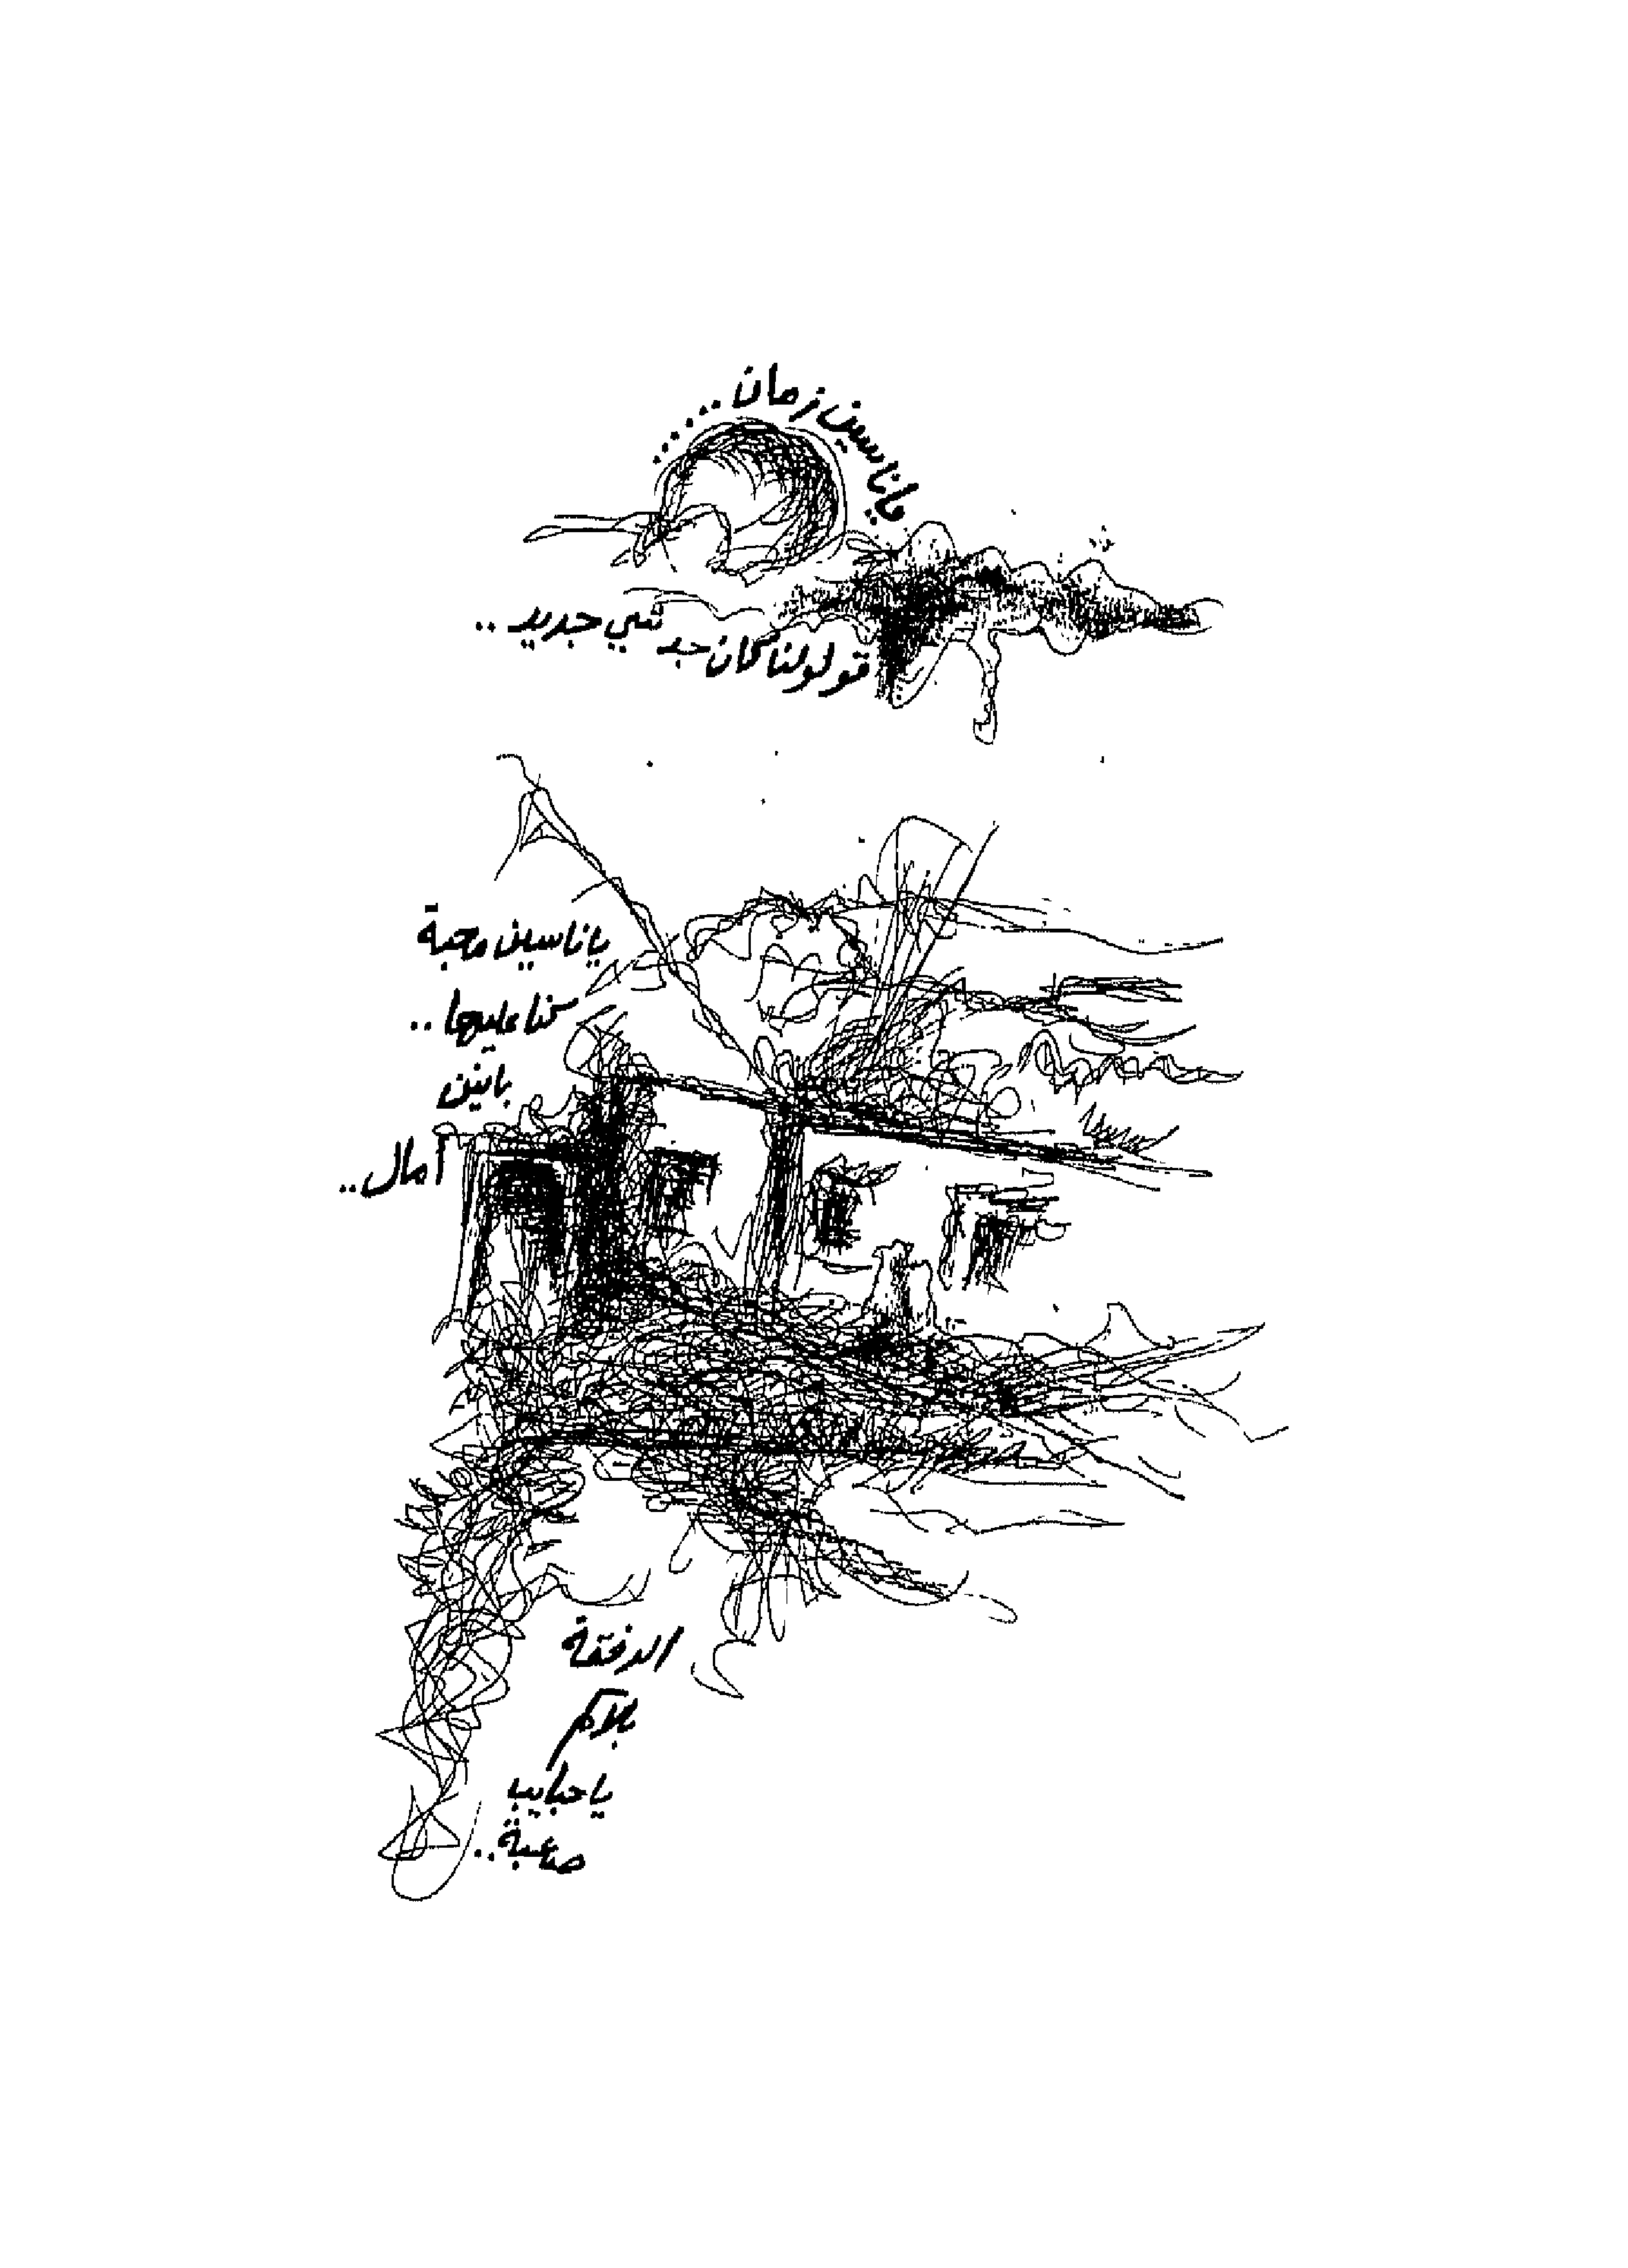 يا ناسين زمان.......
قولولنا كان جد شي جديد..
يا ناسين محبة
كنا عليها..
بانين
آمال..
الدفقة
بلاكم
يا حبايب
صاعبة..